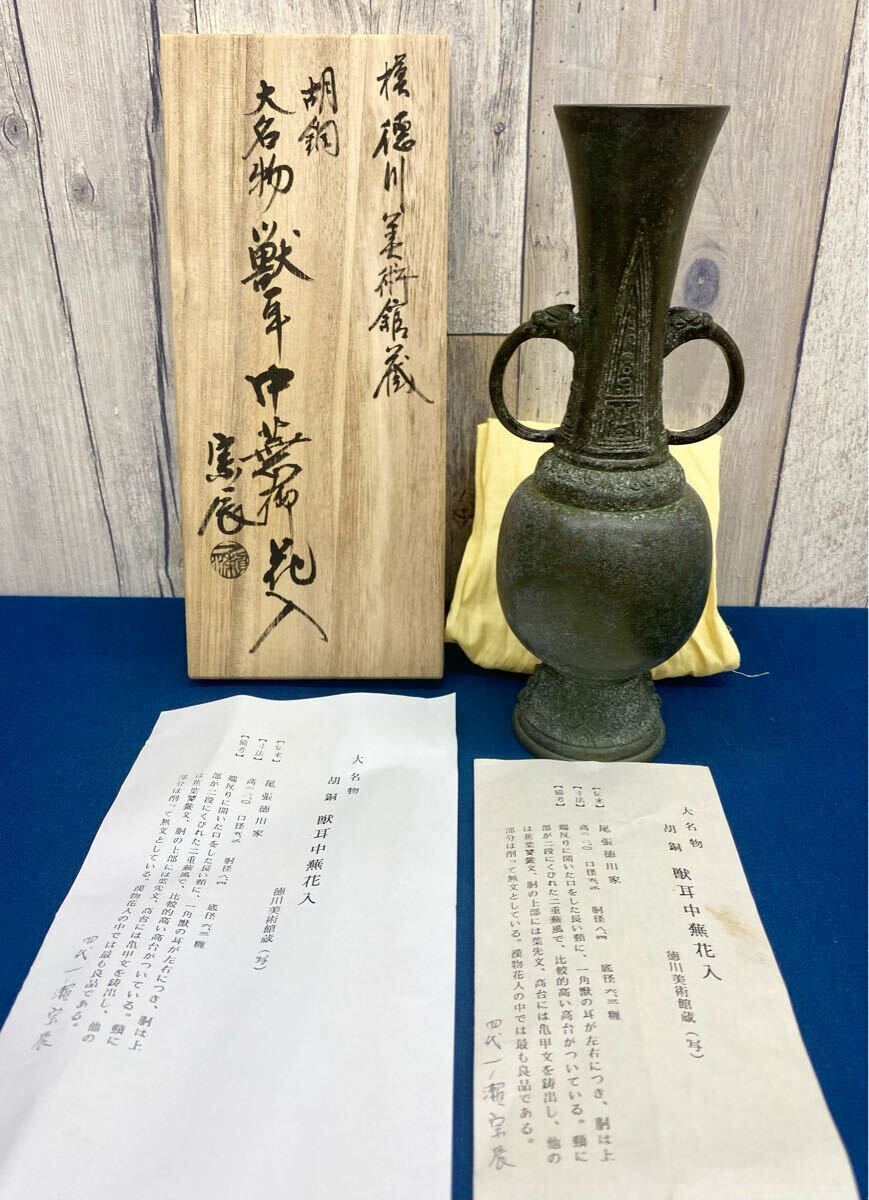 模 德川美術館蔵
胡銅
大名物 獣耳中蕪花入
宗辰
大名物
胡銅 獣耳中蕪花入
徳川美術館蔵(写)
【伝来】 尾張徳川家
【寸法】 口径 胴径八・四 底径六・三糎
【備考】 端反りに開いた口をした長い頸に、一角獣の耳が左右につき、胴は上
部が二段にくびれた二重蕪風で、比較的高い高台がついている。頸に
は蕉葉饕餮文、胴の上部には葉先文、高台には亀甲文を鋳出し、他の
部分は削って無文としている。漢物花入の中では最も良品である。
四代 一ノ瀬宗辰
大名物
胡銅 獣耳中蕪花入
徳川美術館蔵(写)
【伝来】 尾張徳川家
【寸法】 口径 胴径八・四 底径六・三糎
【備考】 端反りに開いた口をした長い頸に、一角獣の耳が左右につき、胴は上
部が二段にくびれた二重蕪風で、比較的高い高台がついている。頸に
は蕉葉饕餮文、胴の上部には葉先文、高台には亀甲文を鋳出し、他の
部分は削って無文としている。漢物花入の中では最も良品である。
四代 一ノ瀬宗辰